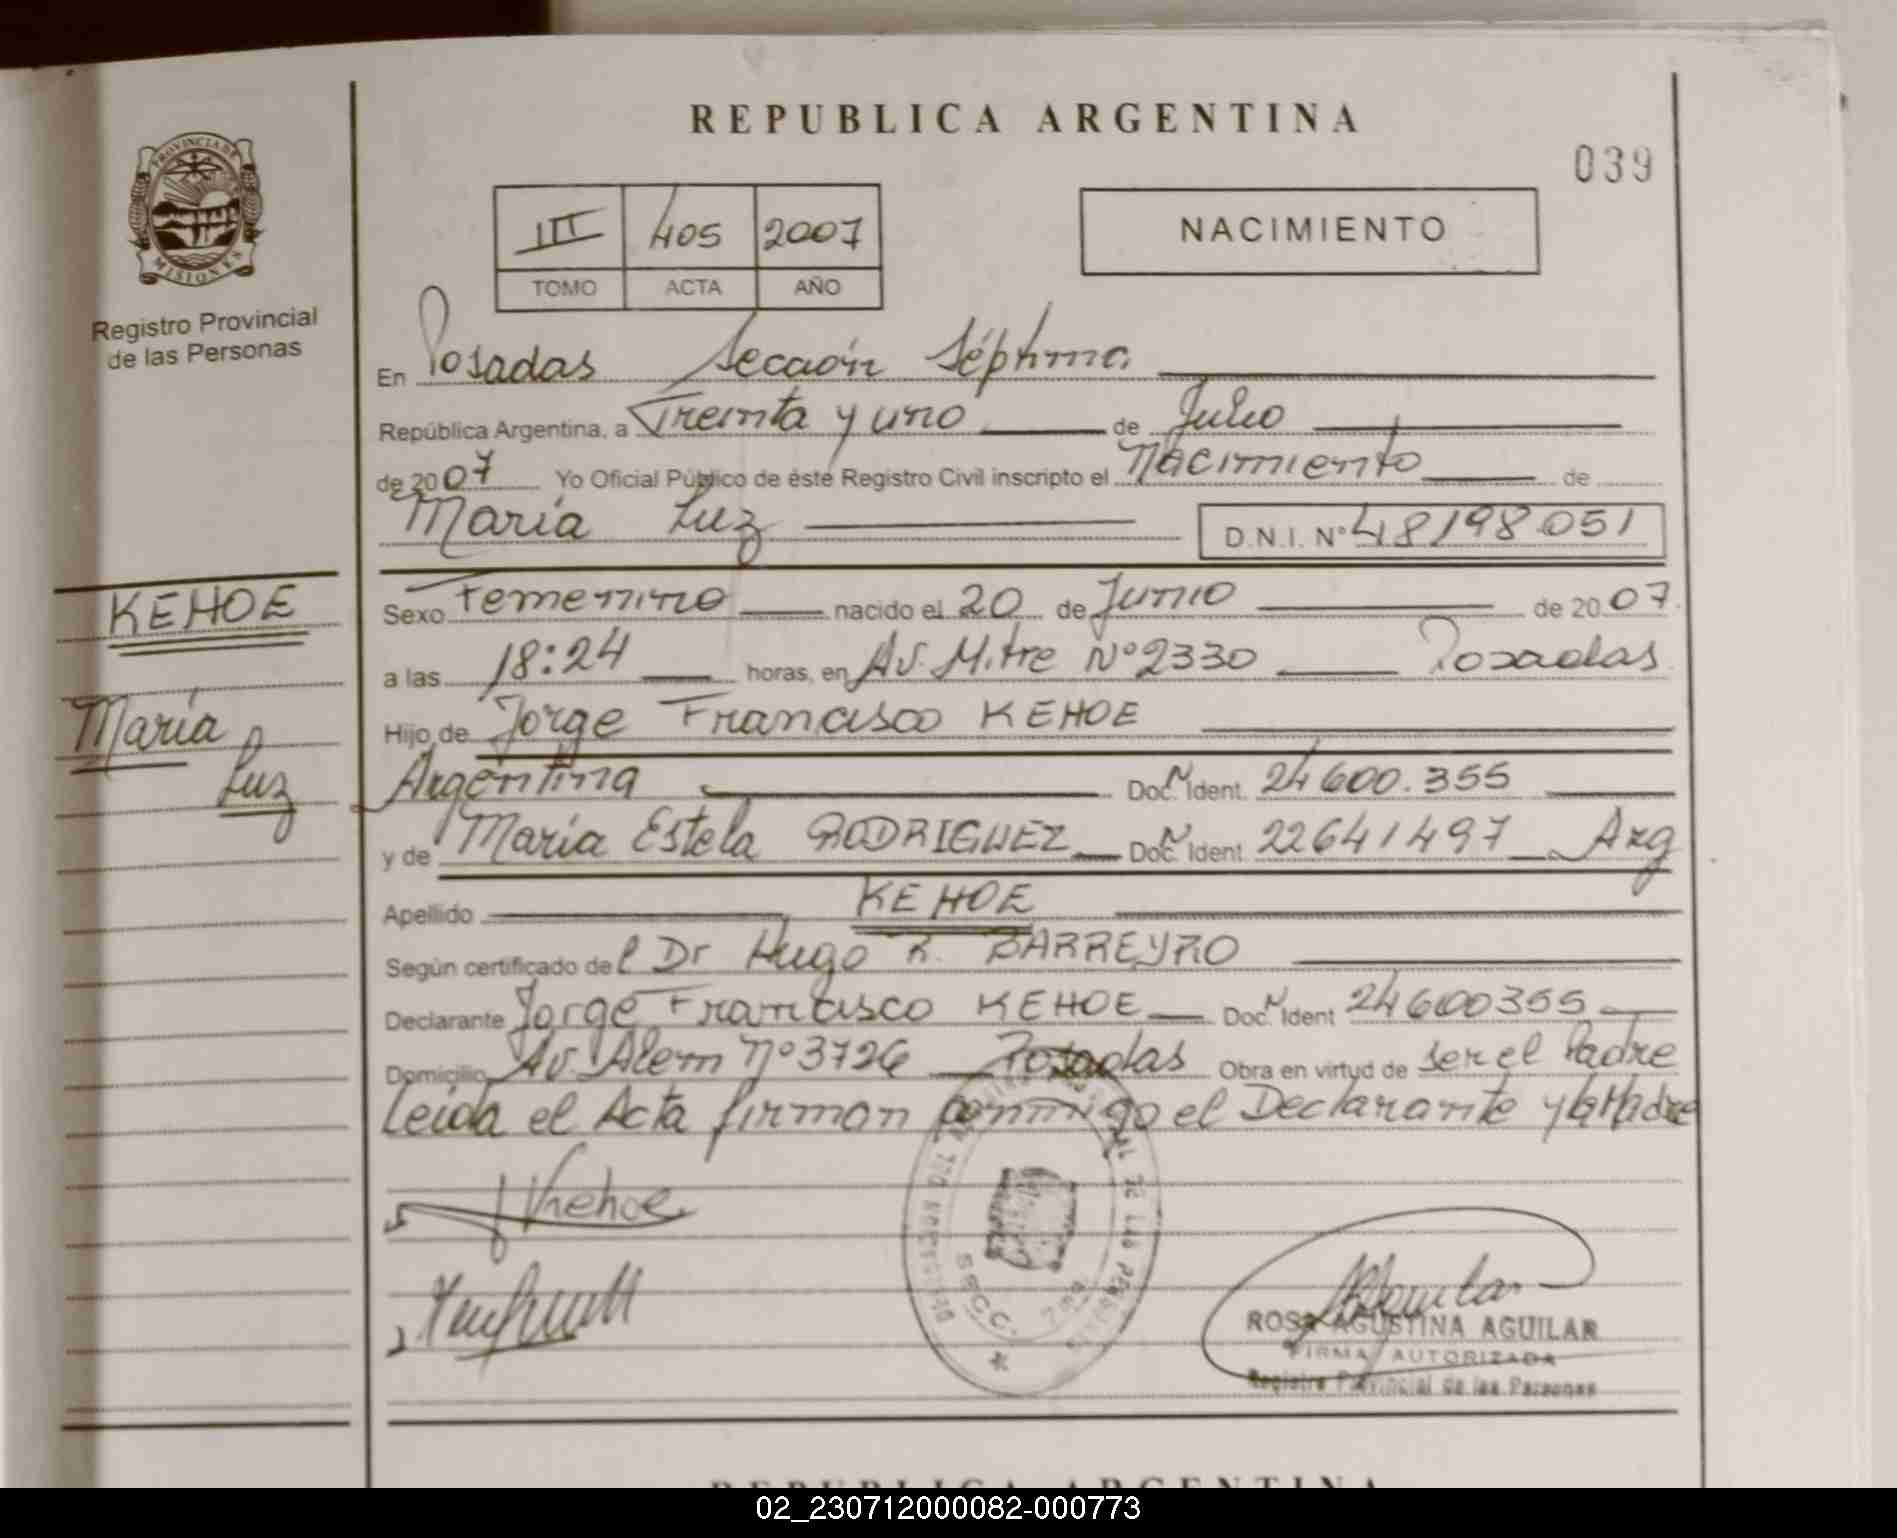 REPUBLICA ARGENTINA
039
PROVINCIA DE MISIONES
Registro Provincial
de las Personas
III 405 2007
TOMO ACTA AÑO
NACIMIENTO
En Posadas Sección Séptima
República Argentina, a Treinta y uno de Julio
de 2007 Yo Oficial Público de éste Registro Civil inscripto el Nacimiento de
María Luz D.N.I. Nº 48198051
KEHOE
María
Luz
Sexo Femenino nacido el 20 de Junio de 2007
a las 18:24 horas, en Av. Mitre Nº 2330 Posadas
Hijo de Jorge Francisco KEHOE
Argentina Doc. Ident. 24600.355
y de María Estela RODRIGUEZ Doc. Ident. 22641497 Arg
Apellido KEHOE
Según certificado del Dr Hugo R. BARREYRO
Declarante Jorge Francisco KEHOE Doc. Ident 24600355
Domicilio Av. Alem Nº 3726 Posadas Obra en virtud de ser el Padre
Leída el Acta firman conmigo el Declarante y la Madre
JKehoe
SECC. 7ma
Aguilar
ROSA AGUSTINA AGUILAR
FIRMA AUTORIZADA
Registro Provincial de las Personas
REPUBLICA ARGENTINA
02_230712000082-000773